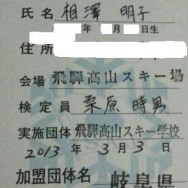 氏名 相澤 明子
年 月 日生
住所
会場 飛騨高山スキー場
検定員 栗原 時男
実施団体 飛騨高山スキー学校
2013年3月3日
加盟団体名 岐阜県